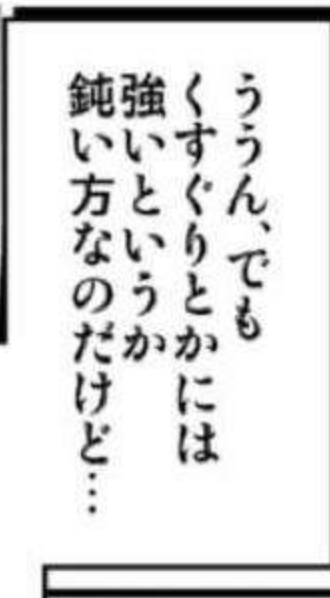 ううん、でも
くすぐりとかには
強いというか
鈍い方なのだけど…